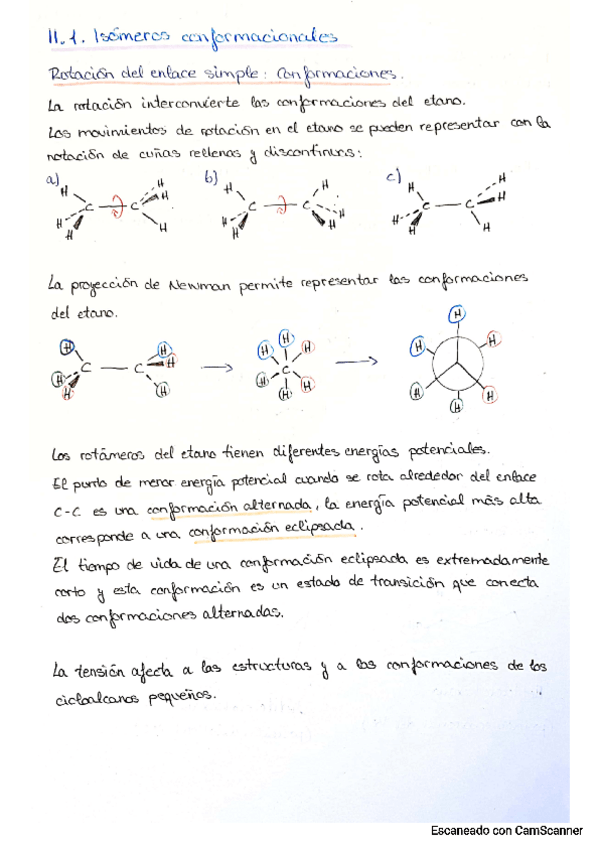 II.1. Isómeros conformacionales
Rotación del enlace simple: Conformaciones.
La rotación interconvierte las conformaciones del etano.
Los movimientos de rotación en el etano se pueden representar con la
notación de cuñas rellenas y discontinuas:
a) b) c)
H H H H H H
C C H C C H C C H
H H H H H H H H H
La proyección de Newman permite representar las conformaciones
del etano.
H
H H H H H H H
C C H C
H H H H H H H H
H H
Los rotámeros del etano tienen diferentes energías potenciales.
El punto de menor energía potencial cuando se rota alrededor del enlace
C-C es una conformación alternada, la energía potencial más alta
corresponde a una conformación eclipsada.
El tiempo de vida de una conformación eclipsada es extremadamente
corto y esta conformación es un estado de transición que conecta
dos conformaciones alternadas.
La tensión afecta a las estructuras y a las conformaciones de los
cicloalcanos pequeños.
Escaneado con CamScanner